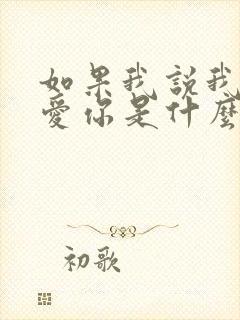 如果我説我
愛你是什麼
初歌